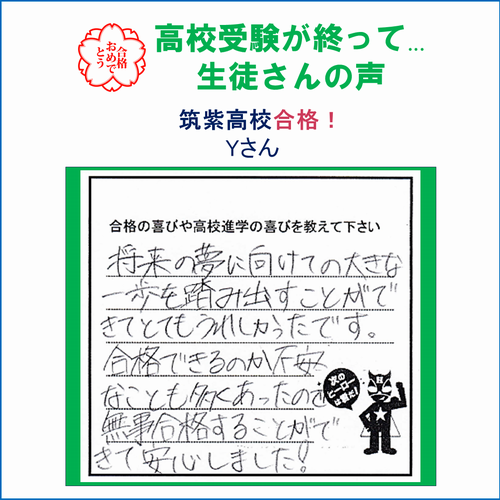 合格
おめで
とう
高校受験が終って...
生徒さんの声
筑紫高校合格！
Yさん
合格の喜びや高校進学の喜びを教えて下さい
将来の夢に向けての大きな
一歩を踏み出すことがで
きてとてもうれしかったです。
合格できるのか不安
なことも多くあったので
無事合格することがで
きて安心しました!
次の
ヒーロー
は君だ!